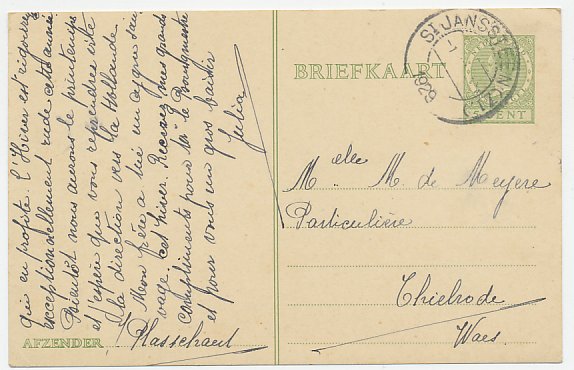 qui en profite. L'Hiver est victorieux
exceptionnellement rude cette année
Bientôt nous aurons le printemps
et j'espère que vous reprendrez vite
la direction vers la Hollande
Mon frère a tué un cygne sau-
vage cet hiver. Recevez mes grands
compliments pour Mr le Bourgmestre
et pour vous un gros baisir
Julia
AFZENDER Klasschaert
BRIEFKAART
St JANSSTEEN (Z.)
1929
CENT
Melle M. de Meyere
Particulière
Thielrode
Waes